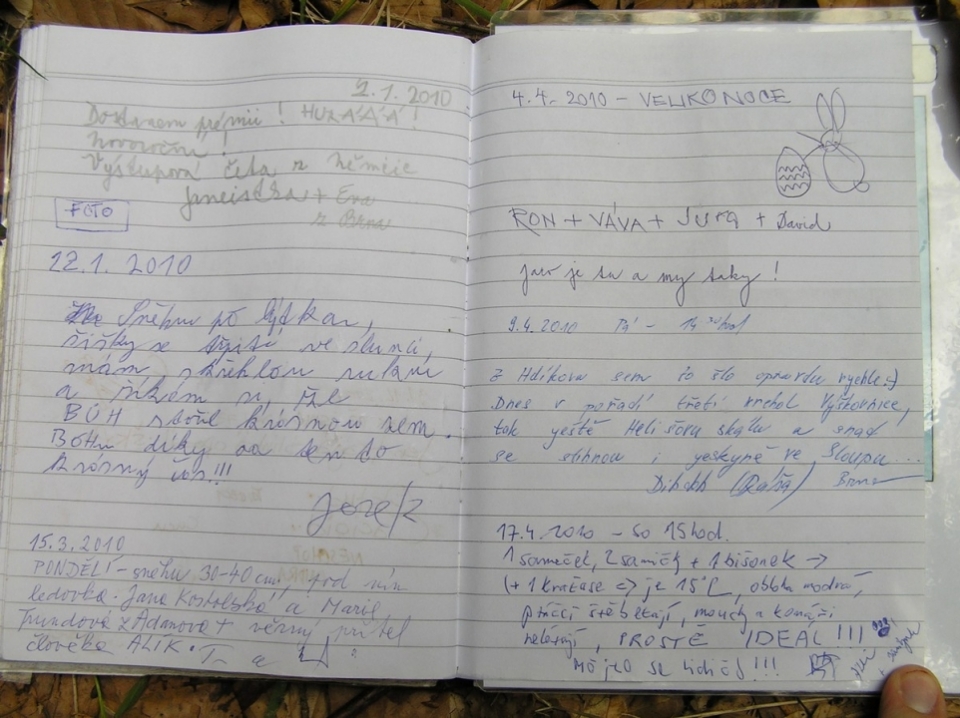 1.1.2010
Dostanem prémii! HURÁÁÁ!
Novoroční!
Výstupová četa z Němčic
+ Eva
z Brna
FOTO
12.1.2010
Sněhu po lýtka,
šišky se třpytí ve slunci,
mám skřehlou rukou
a říkám si, že
BŮH stvořil krásnou zem.
BOHU díky za tento
krásný čas!!!
15.3.2010
PONDĚLÍ - sněhu 30-40 cm, pod ním
ledovka. Jana a Marie
z Adamova + věrný přítel
člověka ALÍK.
4.4. 2010 - VELIKONOCE
RON + VÁVA + JURA + David
Jaro je tu a my taky!
9.4.2010 Pá - 14
z Hdíkova sem to šlo opravdu rychle =)
Dnes v pořadí třetí vrchol Vyškovnice,
tak ještě Helišovu skálu a snad
se stihnou i jeskyně ve Sloupu...
(Ráďa) Brno
17.4.2010 - so 15 hod.
1 sameček, 2 samičky + 1 bišonek →
(+ 1 => je 15°C, obloha modrá,
ptáčci štěbetají, mouchy a komáři
nelétají, PROSTĚ IDEÁL!!!
Mějte se lidičky!!!